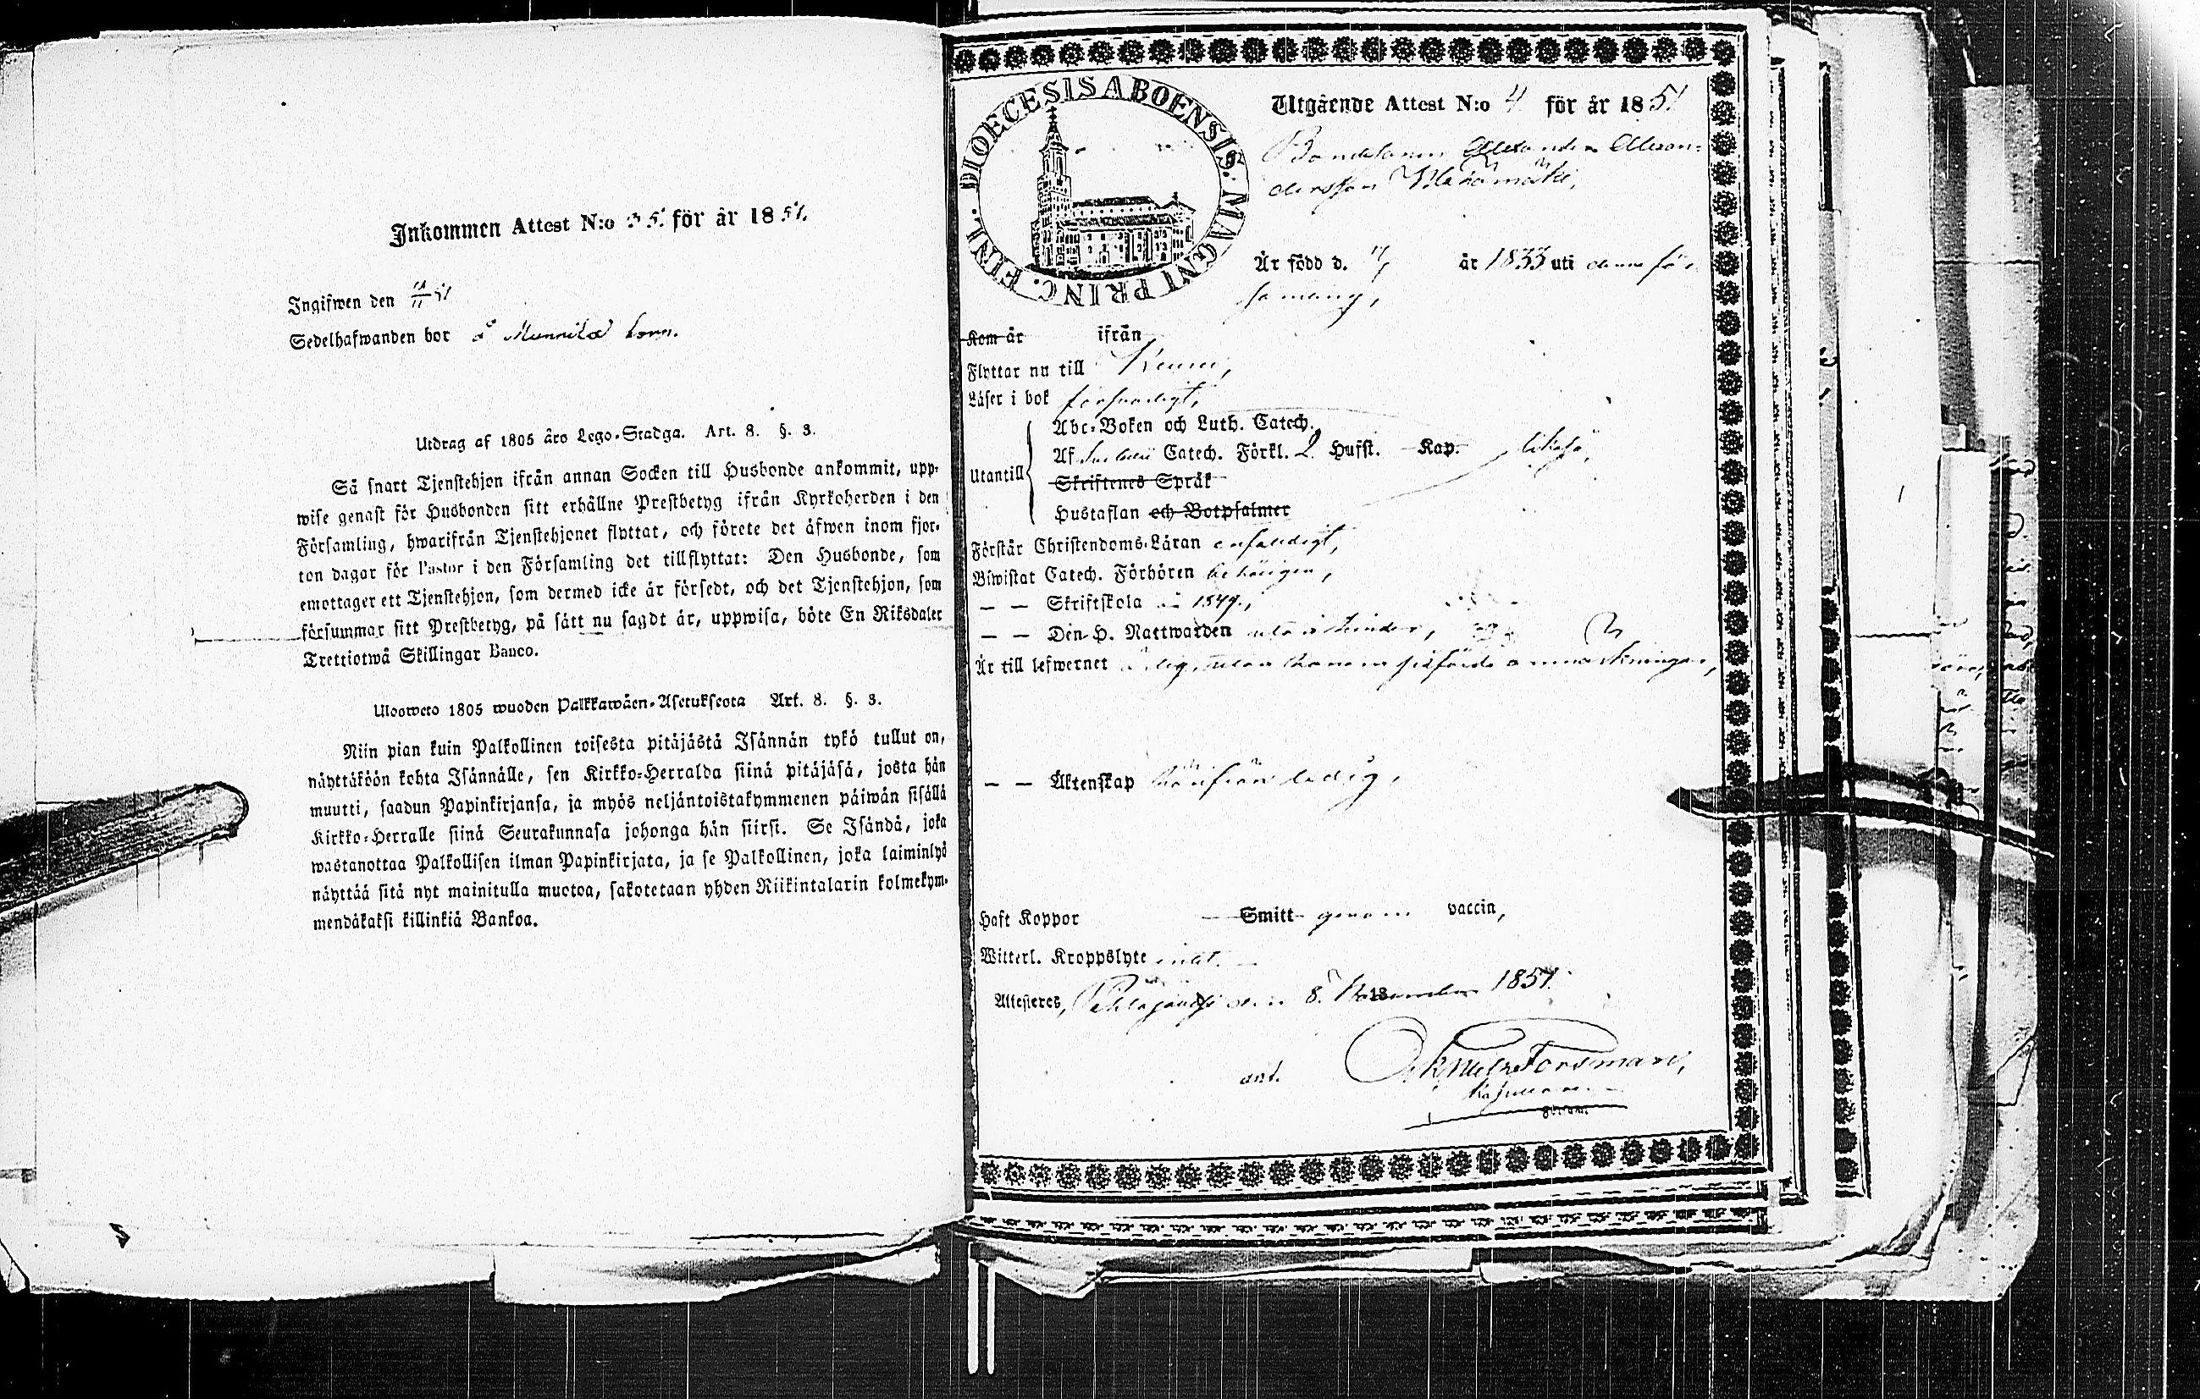 Inkommen Attest N:o 35. för år 1851.
Ingifwen den
Sedelhafwanden bor å Munnila
Utdrag af 1805 års Lego-Stadga. Art. 8. §. 3.
Så snart Tjenstehjon ifrån annan Socken till Husbonde ankommit, upp-
wise genast för Husbonden sitt erhållne Prestbetyg ifrån Kyrkoherden i den
Församling, hwarifrån Tjenstehjonet flyttat, och förete det äfwen inom fjor-
ton dagar för Pastor i den Församling det tillflyttat: Den Husbonde, som
emottager ett Tjenstehjon, som dermed icke är försedt, och det Tjenstehjon, som
försummar sitt Prestbetyg, på sätt nu sagdt är, uppwisa, böte En Riksdaler
Trettiotwå Skillingar Banco.
Ulosweto 1805 wuoden Palkkawäen-Asetuksesta Art. 8. §. 3.
Niin pian kuin Palkollinen toisesta pitäjästä Isännän tykö tullut on,
näyttäköön kohta Isännälle, sen Kirkko-Herralda siinä pitäjäsä, josta hän
muutti, saadun Papinkirjansa, ja myös neljäntoistakymmenen päiwän sisällä
Kirkko-Herralle siinä Seurakunnasa johonga hän siirsi. Se Isändä, joka
wastanottaa Palkollisen ilman Papinkirjata, ja se Palkollinen, joka laiminlyö
näyttää sitä nyt mainitulla muotoa, sakotetaan yhden Riikintalarin kolmekym-
mendäkaksi killinkiä Bankoa.
DIOECESIS ABOENSIS. MAGNI PRINC. FINL.
Utgående Attest N:o 4. för år 1851
Bondesonen Alexander Alexan-
dersson
Är född d. år 1833 uti denna för-
samling,
Kom år ifrån
Flyttar nu till
Läser i bok försvarligt,
Abc-Boken och Luth. Catech.
Utantill Af Catech. Förkl. 2 Hufst. Kap. likaså,
Skriftenes Språk
Hustaflan och Botpsalmer
Förstår Christendoms-Läran enfaldigt,
Biwistat Catech. Förhören behörigen,
— — Skriftskola 1849,
— — Den H. Nattwarden utan hinder,
Är till lefwernet ärlig, utan anmärkningar,
— — Äktenskap härifrån ledig,
Haft Koppor Smitt genom vaccin,
Witterl. Kroppslyte intet.
Attesteras, den 8. November 1851.
Forsman,